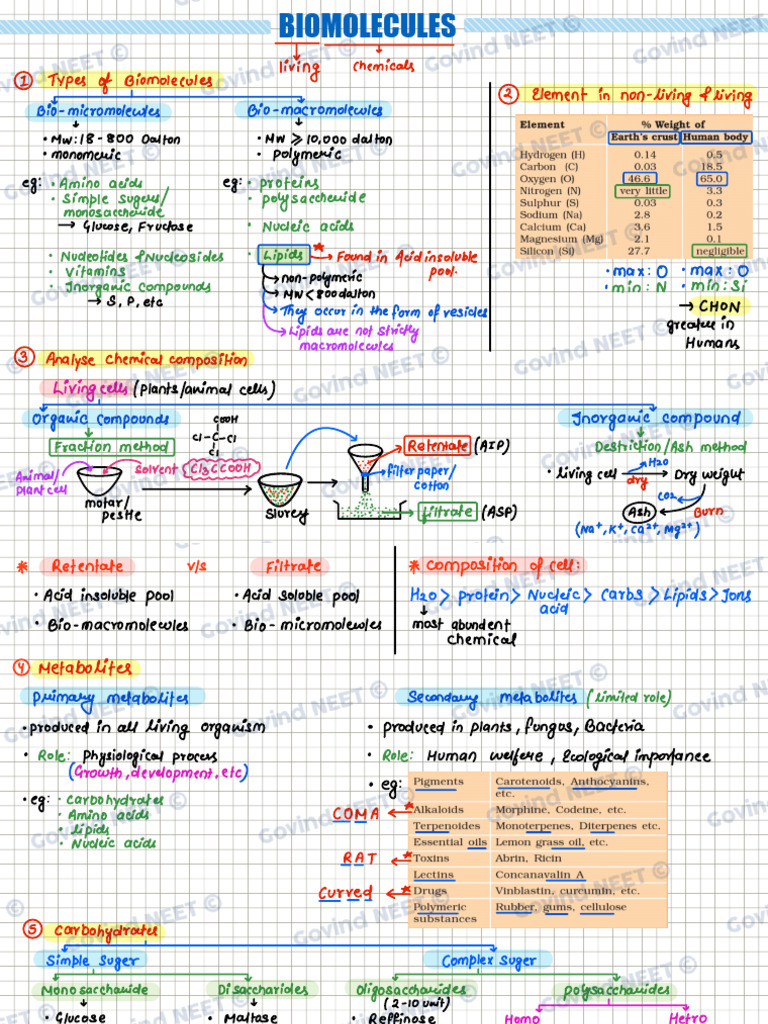 BIOMOLECULES
living chemicals
① Types of Biomolecules
Bio-micromolecules
• Mw: 18 - 800 Dalton
• monomeric
eg: • Amino acids
• Simple sugers/
monosaccharide
→ Glucose, Fructose
• Nucleotides & Nucleosides
• Vitamins
• Inorganic compounds
→ S, P, etc
Bio-macromolecules
• MW ⩾ 10,000 dalton
• polymeric
eg: • proteins
• polysaccharide
• Nucleic acids
• Lipids * → Found in Acid insoluble
pool.
non-polymeric
MW < 800 dalton
They occur in the form of vesicles
Lipids are not strictly
macromolecules
② Element in non-living & living
Element % Weight of
Earth's crust Human body
Hydrogen (H) 0.14 0.5
Carbon (C) 0.03 18.5
Oxygen (O) 46.6 65.0
Nitrogen (N) very little 3.3
Sulphur (S) 0.03 0.3
Sodium (Na) 2.8 0.2
Calcium (Ca) 3.6 1.5
Magnesium (Mg) 2.1 0.1
Silicon (Si) 27.7 negligible
• max: O • max: O
• min: N • min: Si
→ CHON
greater in
Humans
③ Analyse chemical composition
Living cells (plants/animal cells)
Organic compounds
Fraction method
Animal/
plant cell
Solvent Cl3CCOOH
COOH
Cl-C-Cl
Cl
motar/
pestle
slurry
Retentate (AIP)
filter paper/
cotton
filtrate (ASP)
Inorganic compound
Destriction/Ash method
• living cell → Dry weight
H2O
dry
CO2
Burn
Ash
(Na+, K+, Ca2+, Mg2+)
* Retentate v/s Filtrate
• Acid insoluble pool • Acid soluble pool
• Bio-macromolecules • Bio-micromolecules
* composition of cell:
H2O > protein > Nucleic > carbs > Lipids > Ions
acid
most abundent
chemical
④ Metabolites
Primary metabolites
• produced in all living organism
• Role: Physiological process
(Growth, development, etc)
• eg: • Carbohydrates
• Amino acids
• lipids
• Nucleic acids
Secondary metabolites (limited role)
• produced in plants, fungus, Bacteria
• Role: Human welfere, Ecological importance
• eg:
Pigments Carotenoids, Anthocyanins,
etc.
COMA ← * Alkaloids Morphine, Codeine, etc.
Terpenoides Monoterpenes, Diterpenes etc.
Essential oils Lemon grass oil, etc.
RAT ← * Toxins Abrin, Ricin
Lectins Concanavalin A
Curved ← * Drugs Vinblastin, curcumin, etc.
Polymeric Rubber, gums, cellulose
substances
⑤ Carbohydrates
Simple Suger
Complex Suger
Monosaccharide Disaccharides Oligosaccharides polysaccharides
(2-10 unit)
• Glucose • Maltase • Reffinose Homo Hetro
Govind NEET ©